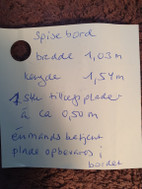 Spise bord
bredde 1,03 m
længde 1,54 m
1 stk tillægsplade
á ca 0,50 m
énmands betjent
plade opbevares i
bordet